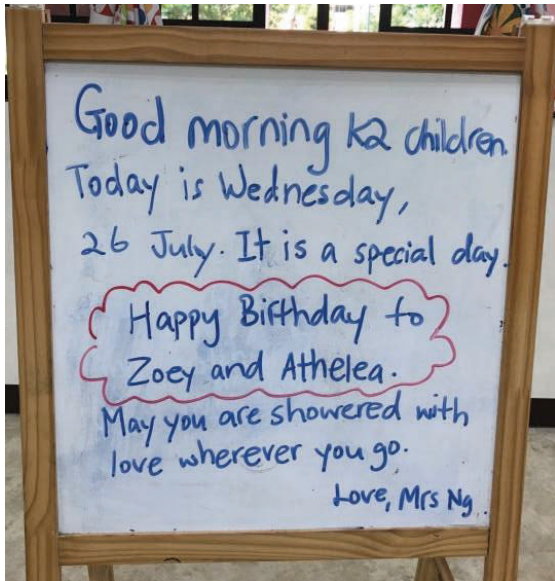 Good morning K2 children.
Today is Wednesday,
26 July. It is a special day.
Happy Birthday to
Zoey and Athelea.
May you are showered with
love wherever you go.
Love, Mrs Ng.